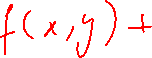 f(x,y) +